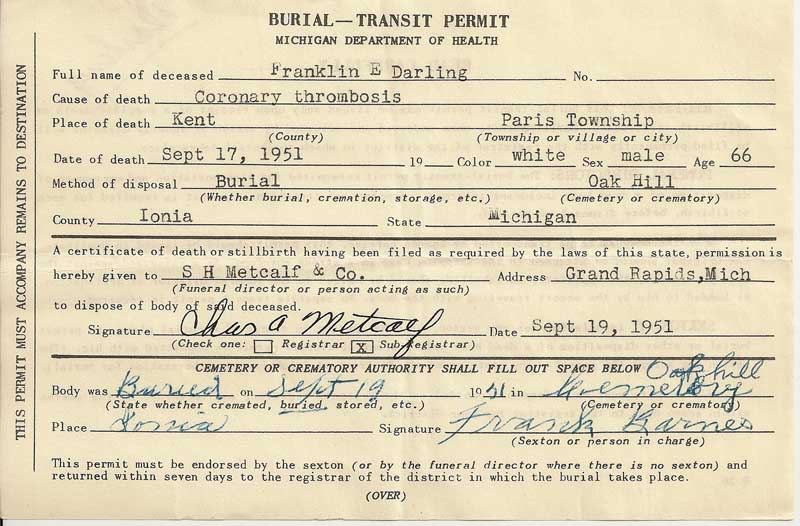 BURIAL—TRANSIT PERMIT
MICHIGAN DEPARTMENT OF HEALTH
THIS PERMIT MUST ACCOMPANY REMAINS TO DESTINATION
Full name of deceased Franklin E Darling No.
Cause of death Coronary thrombosis
Place of death Kent Paris Township
(County) (Township or village or city)
Date of death Sept 17, 1951 19 Color white Sex male Age 66
Method of disposal Burial Oak Hill
(Whether burial, cremation, storage, etc.) (Cemetery or crematory)
County Ionia State Michigan
A certificate of death or stillbirth having been filed as required by the laws of this state, permission is
hereby given to S H Metcalf & Co. Address Grand Rapids,Mich
(Funeral director or person acting as such)
to dispose of body of said deceased.
Signature Chas A Metcalf Date Sept 19, 1951
(Check one: Registrar X Sub-Registrar)
CEMETERY OR CREMATORY AUTHORITY SHALL FILL OUT SPACE BELOW Oak hill
Body was Buried on Sept 19 1951 in
(State whether cremated, buried, stored, etc.) (Cemetery or crematory)
Place Ionia Signature Frank Barnes
(Sexton or person in charge)
This permit must be endorsed by the sexton (or by the funeral director where there is no sexton) and
returned within seven days to the registrar of the district in which the burial takes place.
(OVER)